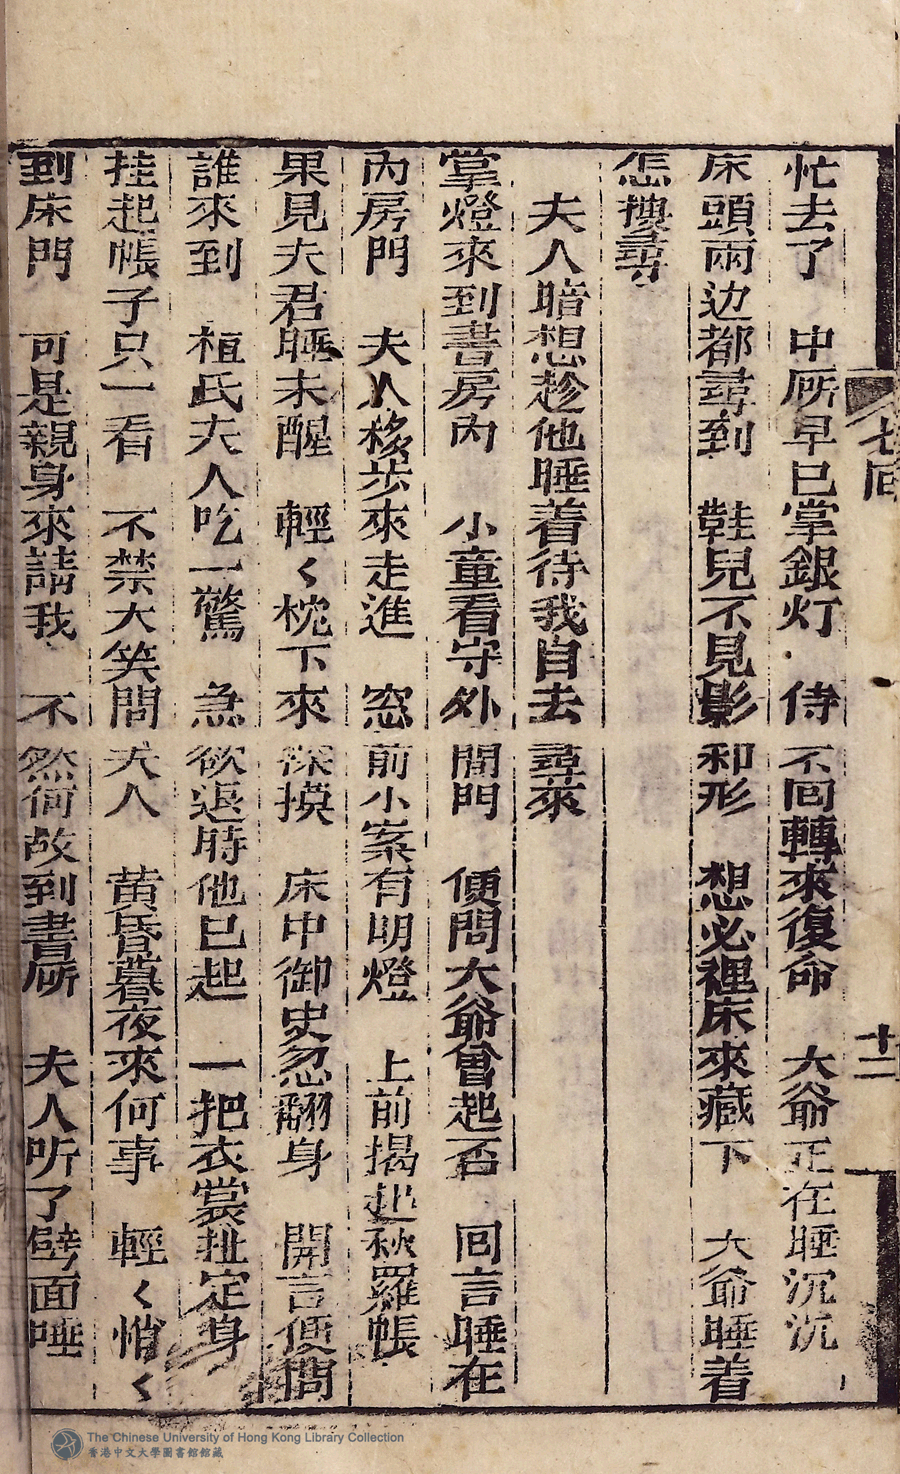 忙去了　中厛早已掌銀灯　侍不回轉來復命　大爺正在睡沉沉
床頭兩边都尋到　鞋兒不見影和形　想必裡床來藏下　大爺睡着
怎摟尋
夫人暗想趁他睡着待我自去尋來
掌燈來到書房內　小童看守外間門　便問大爺曾起否　回言睡在
內房門　夫人移步來走進　窓前小案有明燈　上前揭起秋羅帳
果見夫君睡未醒　輕〱枕下來探摸　床中御史忽翻身　開言便問
誰來到　桓氏夫人吃一驚　急欲退時他已起　一把衣裳扯定身
挂起帳子只一看　不禁大笑問夫人　黄昏暮夜來何事　輕〱悄〱
到床門　可是親身來請我　不然何故到書厛　夫人听了劈面唾
七囬
十二
The Chinese University of Hong Kong Library Collection
香港中文大學圖書館館藏